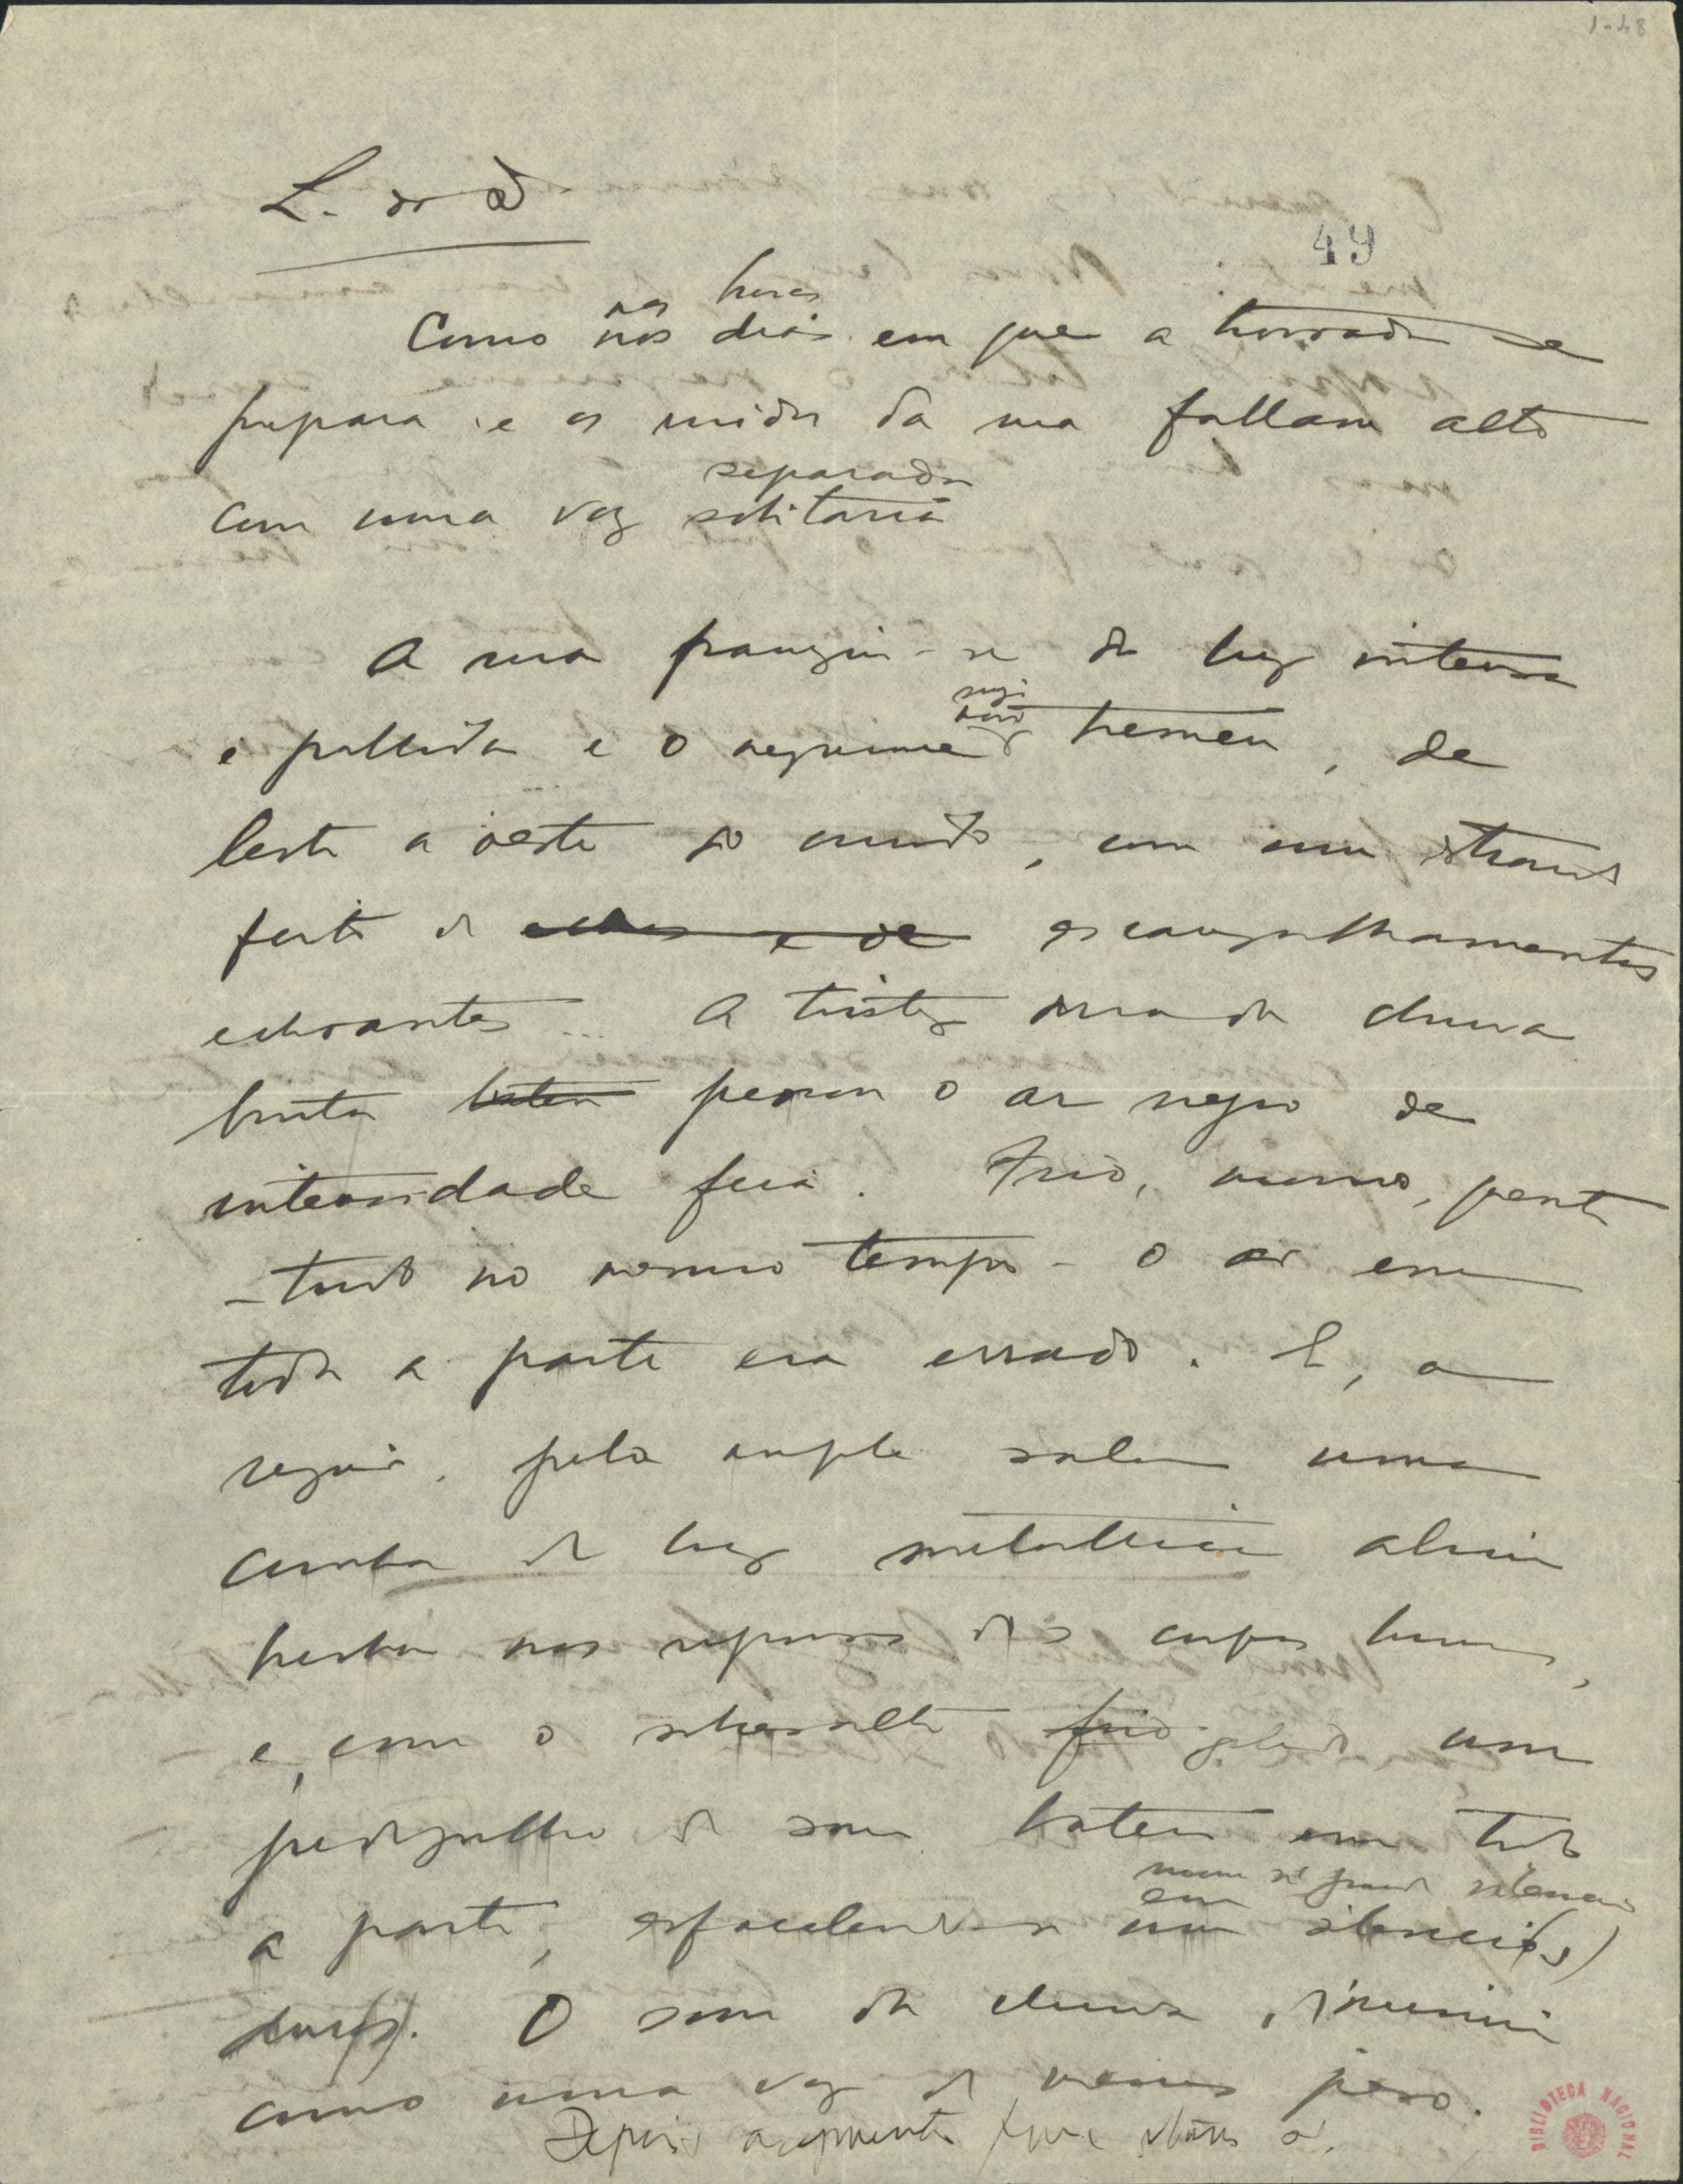 1-48
L. do D.
49
nas horas
Como nos dias em que a trovoada se
prepara e os ruidos da rua fallam alto
separada
com uma voz solitaria
A rua franziu-se de luz intensa
e pallida e o negrume tremeu, de
leste a oeste do mundo, com um estrondo
feito de echos e de escangalhamentos
echoantes... A tristeza dura da chuva
bruta bateu peorou o ar negro de
intensidade feia. Frio, morno, quente
- tudo no mesmo tempo - o ar em
toda a parte era errado. E, a
seguir, pela ampla sala uma
cunha de luz metallica abriu
brecha nos repousos dos corpos humanos,
e, com o sobresalto frio gelado um
pedregulho de som bateu em toda
num só grande silencio
em
a parte, esfacelando-se um silencio(s)
duro(s). O som da chuva diminui
como uma voz de menos peso.
Depois
BIBLIOTECA NACIONAL